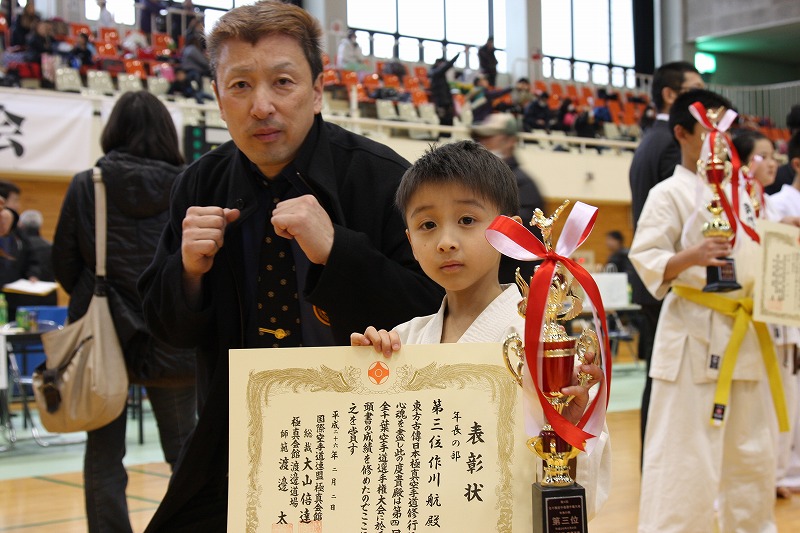 会
表彰状
年長の部
第三位 作川 航 殿
東方古傳日本極真空手道修行に
心魂を盡し此の度貴殿は第四回
全千葉空手道選手権大会に於
頭書の成績を修めたのでここに
之を賞す
平成二十六年二月二日
国際空手道連盟極真会館
総裁 大山倍達
極真会館 渡邉道場
師範 渡邉 太
第三位